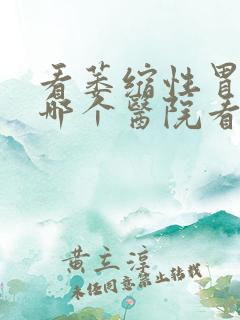 看萎缩性胃
哪个醫院看
黄立淳
未经同意禁止转载